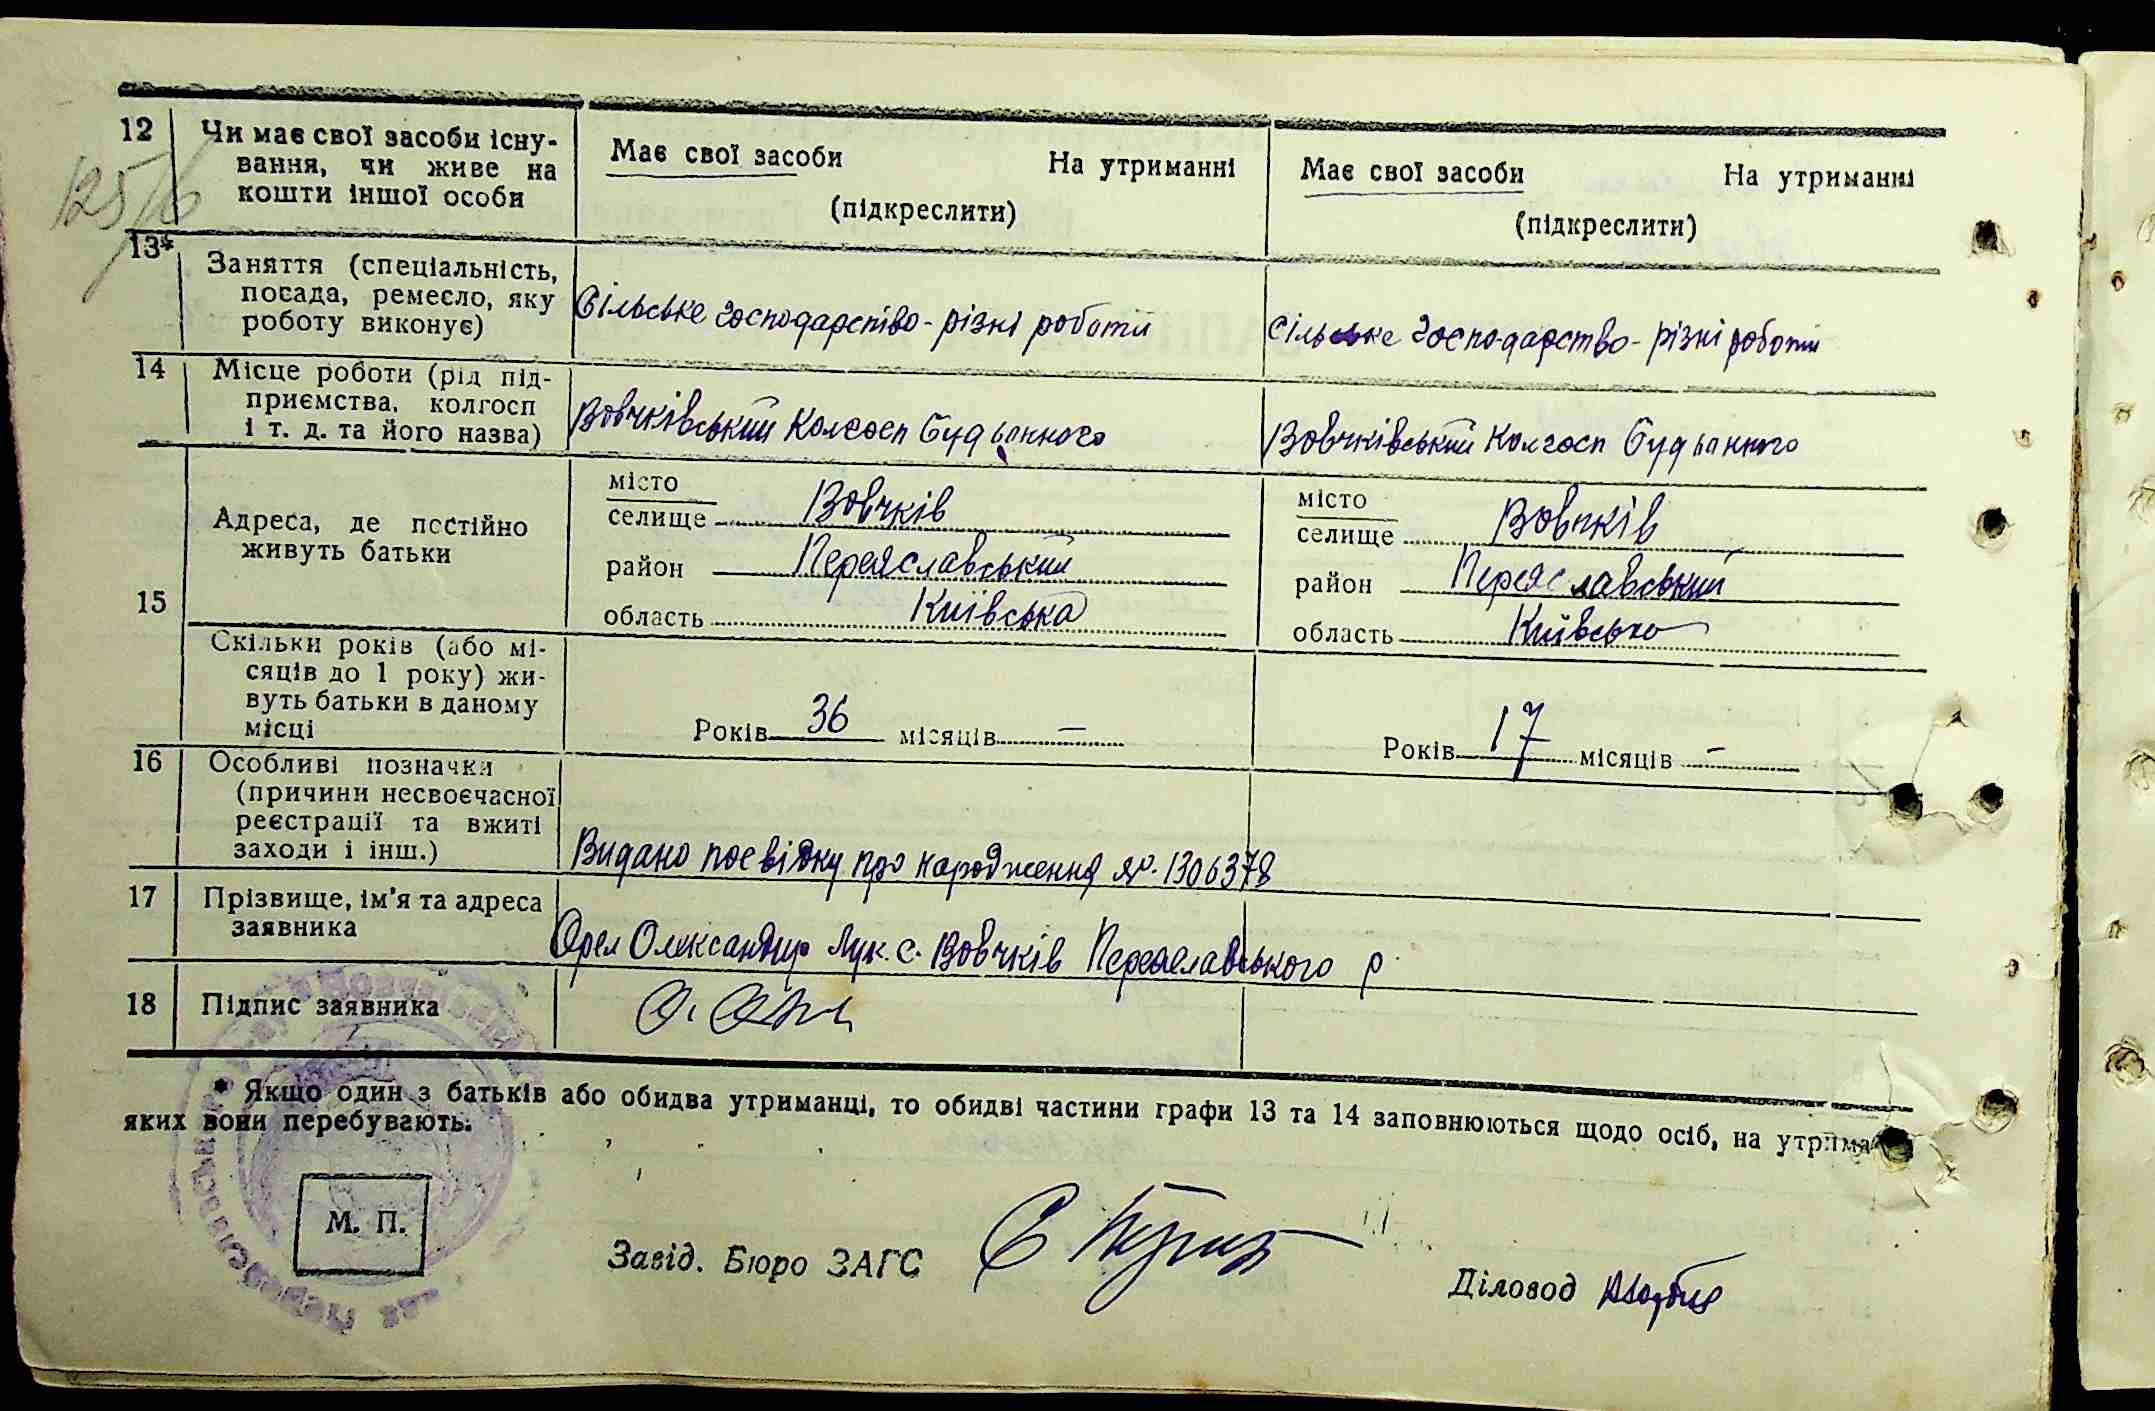 125/6
12 Чи має свої засоби існу-
вання, чи живе на
кошти іншої особи
Має свої засоби На утриманні
(підкреслити)
Має свої засоби На утриманні
(підкреслити)
13* Заняття (спеціальність,
посада, ремесло, яку
роботу виконує)
Сільське господарство - різні роботи
Сільське господарство - різні роботи
14 Місце роботи (рід під-
приємства, колгосп
і т. д. та його назва)
Вовчківський Колгосп Будьонного
Вовчківський Колгосп Будьонного
15 Адреса, де постійно
живуть батьки
місто
селище Вовчків
район Переяславський
область Київська
місто
селище Вовчків
район Переяславський
область Київська
Скільки років (або мі-
сяців до 1 року) жи-
вуть батьки в даному
місці
Років 36 місяців —
Років 17 місяців —
16 Особливі позначки
(причини несвоєчасної
реєстрації та вжиті
заходи і інш.)
Видано посвідку про народження №. 1306378
17 Прізвище, ім'я та адреса
заявника
Орел Олександр Лук. с. Вовчків Переяславського р
18 Підпис заявника
* Якщо один з батьків або обидва утриманці, то обидві частини графи 13 та 14 заповнюються щодо осіб, на утрима
яких вони перебувають.
М. П.
Завід. Бюро ЗАГС
Діловод